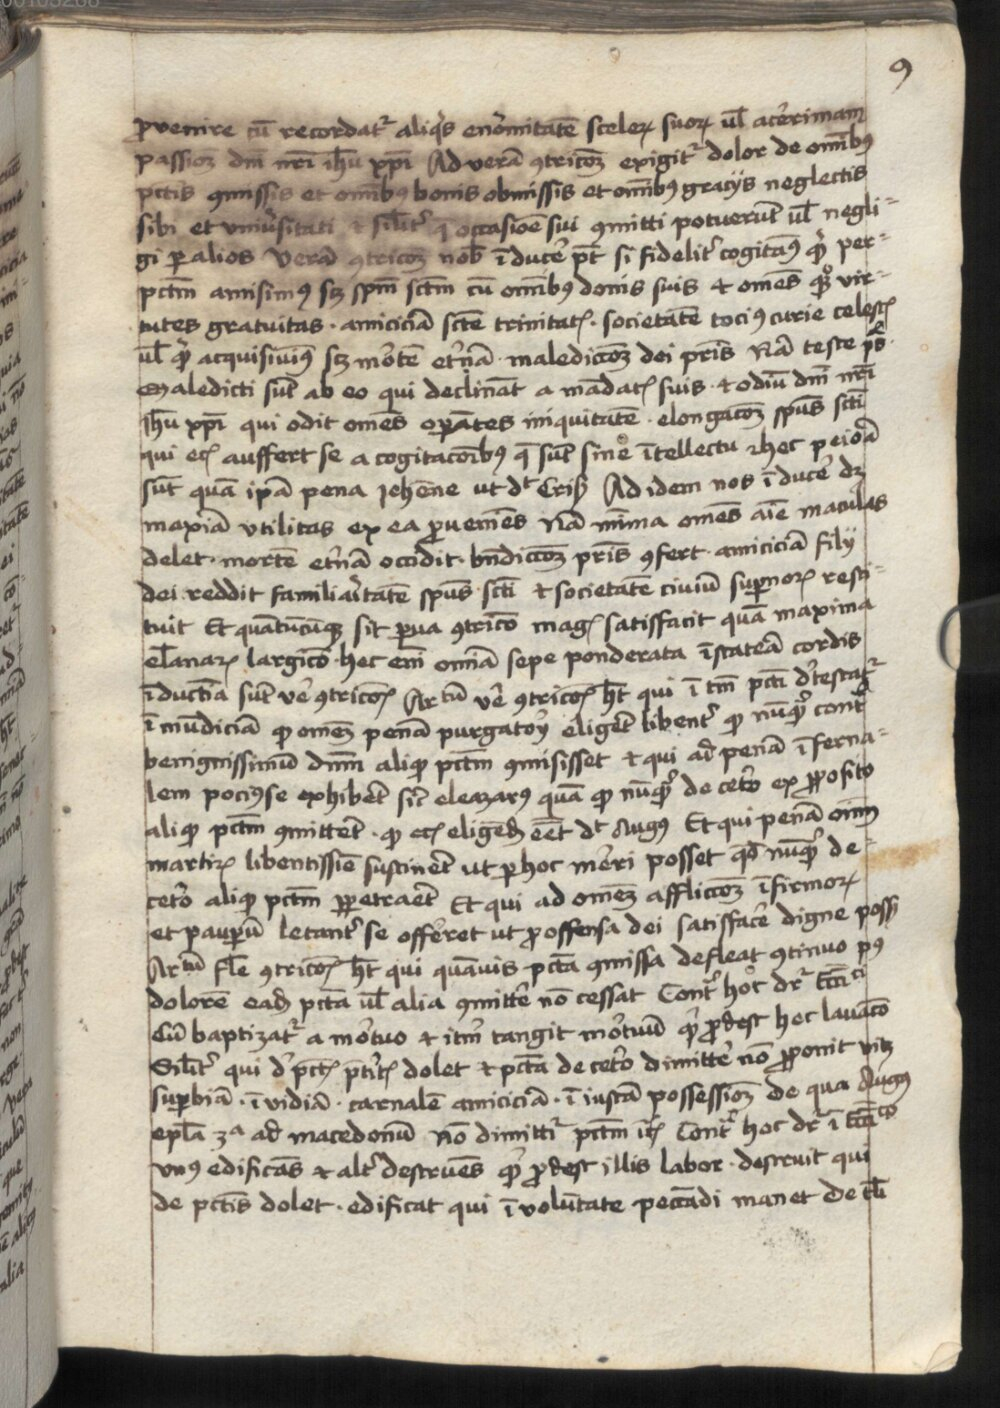 9
provenire cū recordatʳ aliqͥs enoͬmitatē scelerꝫ suorꝫ uł acerͥimam
passioꝫ dm̄ nrī ihū xpī Ad verā ꝯtricōꝫ exigitʳ dolor de om̄ibꝰ
pctīs ꝯmissis et om̄ibꝰ bonis obmissis et om̄ibꝰ gracijs neglectis
sibi et vniuͥsitati ⁊ silītʳ q̄ occasiōe sui ꝯmitti potuerūt uł negli-
gi ꝑ alios Verā ꝯtricōꝫ nob̄ īducē pt̄ si fidelitʳ cogitāꝰ qͥ per-
pctm̄ amisimꝰ sꝫ spm̄ sctm̄ cū om̄ibꝰ donis suis ⁊ omēs qͦꝫ vir-
tutes gratuitas · amiciciā sctē trinitatꝭ · societatē tociꝰ curie celestꝭ
uł qͥ acquisiuimꝰ sꝫ moͬtē et̄nā · maledictōꝫ dei pr̄is Nā teste ps̄
Maledicti sūt ab eo qui declināt a mādatꝭ suis · ⁊ odiū dm̄ nrī
ihū xpī qui odit omēs oꝑātes iniquitatē · elongatōꝫ spūs sctī
qui ecꝭ auffert se a cogitacōibꝰ q̄ sūt sine ītellectu ⁊ hec peioͬa
sūt quā ip̄a pena Jehēne ut dt Cris Ad idem nos īducē dꝫ
maxīa vtilitas ex ea ꝓueniēs Nā mīma omēs aīe maculas
delet · mortē et̄nā occidit · bn̄dictōꝫ pr̄is ꝯfert · amiciciā filij
dei reddit familiaͥitatē spūs sctī ⁊ societatē ciuiū suꝑnorꝫ resti-
tuit Et quātūcūqꝫ sit ꝑua ꝯtricō magꝭ satisfacit quā maxima
elīanarꝫ largicō · hec em̄ om̄ia sepe ponderata īstateā cordis
īductīa sūt ve᷑ ꝯtricōꝭ Artū ve᷑ ꝯtricōꝭ hꝫ qui ī tm̄ pctī dͤtestatʳ
īmūdiciā qͦ omēꝫ penā purgatorͥ eligeͬt libentʳ qͦ nūqͣꝫ contͣ
benignissimū dnm̄ aliqͦ pctm̄ ꝯmisisset ⁊ qui ad penā īferna-
lem pociꝰ se exhibēt sic̄ eleazarꝰ quā qͦ nūqͣꝫ de ceteͬo ex ꝓposito
aliqͦ pctm̄ ꝯmitteͬt · qͦ ecꝭ eligēdꝫ eēt dt Augꝰ Et qui penā oīm
martirꝫ libentissīe sustineͬt ut ꝑ hoc meͬri posset qđ nūqͣꝫ de-
ceteͬo aliqͦ pctm̄ ꝑpetraeͬt Et qui ad omēꝫ afflictōꝫ īfirmorꝫ
et pauꝑū letantʳ se offeͬret ut ꝓ offensa dei satisfaceͬ digne possꝫ
Artū fłe ꝯtricōꝭ hꝫ qui quāuis pctā ꝯmissa defleat ꝯtinuo pꝰ
dolorē eadꝫ pctā uł alia ꝯmitteͬ nō cessat Contͣ hoc drͬ Ecc̄ci
Cū baptizatʳ a moͬtuo ⁊ itm̄ tangit moͬtuū qͥ ꝓdest hec lauacō
Silītʳ qui dͤ pctꝭ ptͥitꝭ dolet ⁊ pctā de ceteͬo dimitteͬ nō ꝓponit vitꝫ
suꝑbiā · īvidiā · carnalē amiciciā · īiustā possessioꝫ de qua Augꝰ
epl̄a 3ª ad macedonū Nō dimittiʳ pctm̄ icꝭ Contͣ hoc drͬ ī Ecc̄co
Vnꝰ edificās ⁊ altʳ destruēs qͥ ꝓdest illis labor · destruit qui
de pctīs dolet · edificat qui ī volūtate peccādi manet De